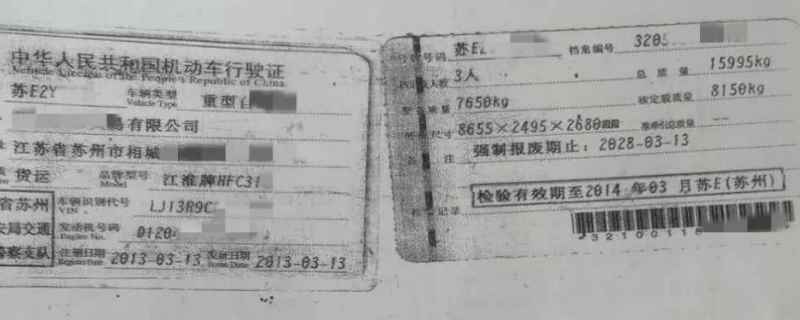 中华人民共和国机动车行驶证
Vehicle License of the People's Republic of China
苏E2Y 车辆类型 重型
Vehicle Type
有限公司
江苏省苏州市相城
货运 品牌型号 江淮牌HFC31
Model
省苏州 车辆识别代号 LJ13R9C
VIN
安局交通 发动机号码 0120
Engine No.
警察支队 注册日期 2013-03-13 发证日期 2013-03-13
Register Date Issue Date
号码 苏E 档案编号 3205
人数 3人 总质量 15995kg
质量 7650kg 核定载质量 8150kg
尺寸 8655×2495×2680 准牵引总质量 --
注 强制报废期止: 2028-03-13
记录 检验有效期至2014年03月苏E(苏州)
32100118